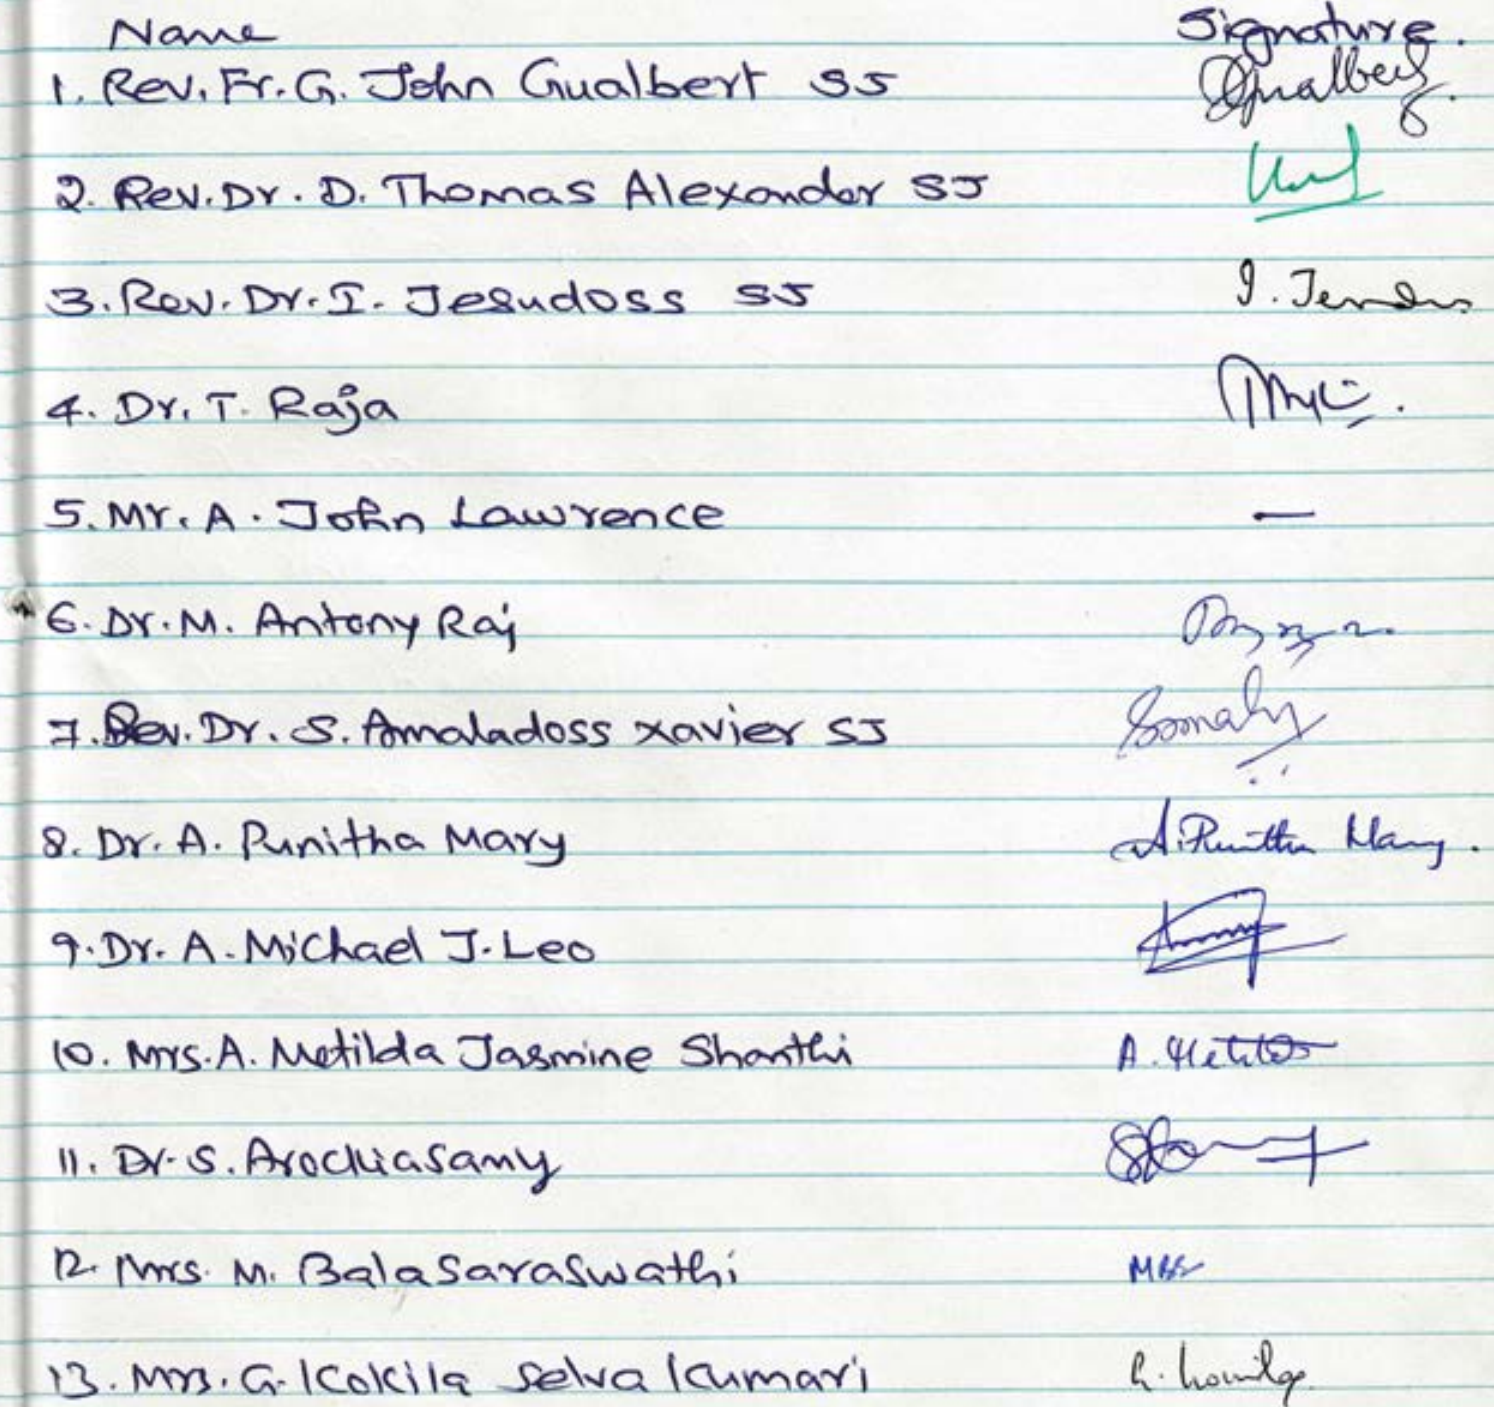 Name Signature.
1. Rev. Fr. G. John Gualbert SJ Gualbert.
2. Rev. Dr. D. Thomas Alexander SJ
3. Rev. Dr. I. Jesudoss SJ
4. Dr. T. Raja
5. Mr. A. John Lawrence —
6. Dr. M. Antony Raj
7. Rev. Dr. S. Amaladoss Xavier SJ
8. Dr. A. Punitha Mary A. Punitha Mary.
9. Dr. A. Michael J. Leo
10. Mrs. A. Metilda Jasmine Shanthi
11. Dr. S. Arockiasamy
12. Mrs. M. Balasaraswathi
13. Mrs. G. Kokila Selva Kumari